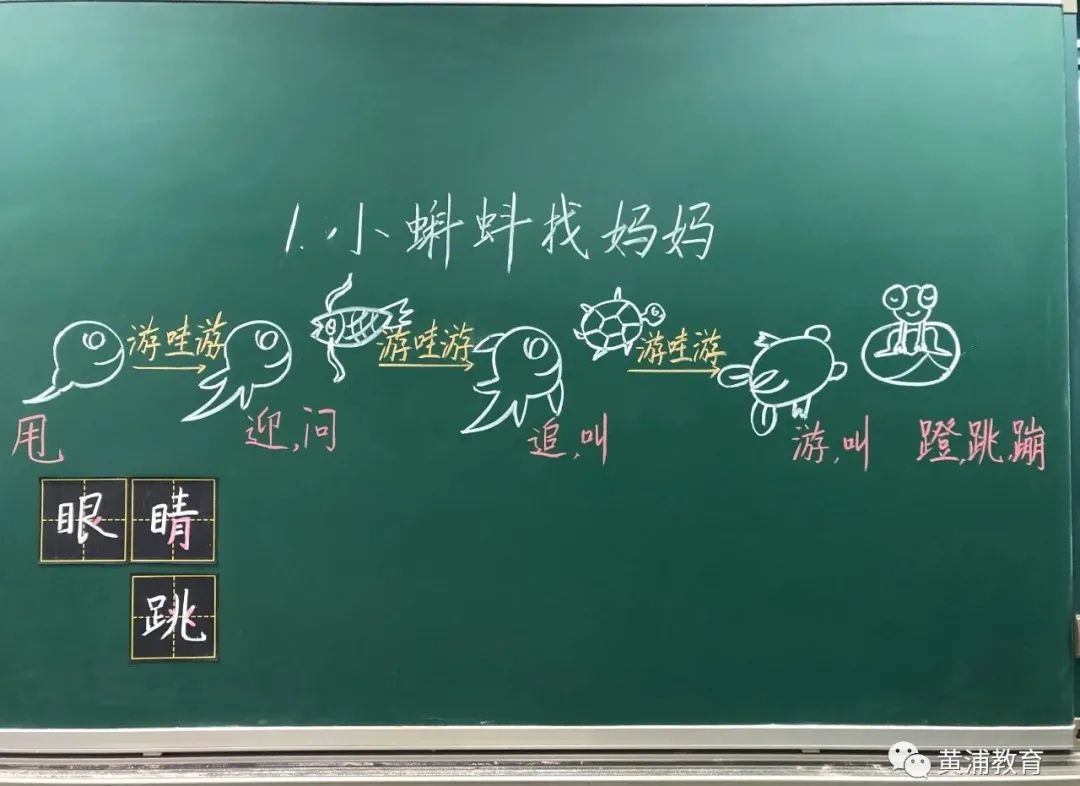 1.小蝌蚪找妈妈
游哇游 游哇游 游哇游
甩 迎,问 追,叫 游,叫 蹬,跳,蹦
眼睛
跳
黄浦教育